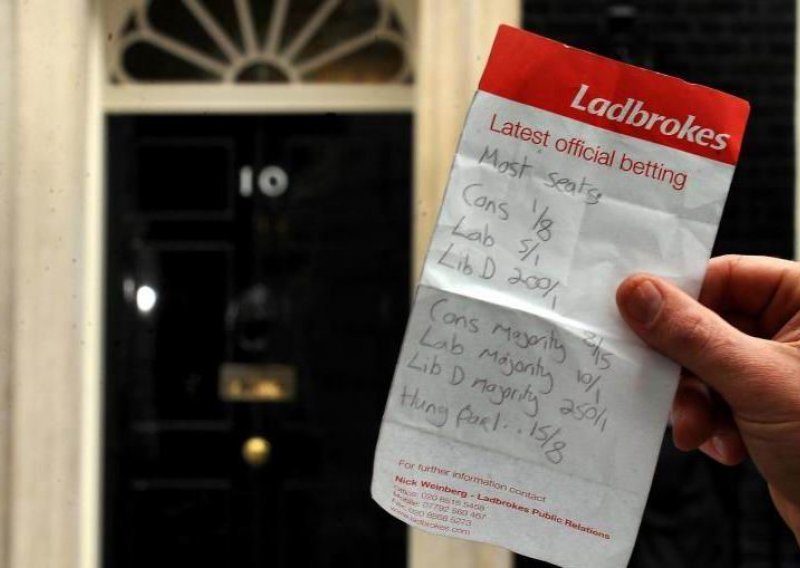 10
Ladbrokes
Latest official betting
Most seats,
Cons 1/8
Lab 5/1
Lib D 200/1
Cons Majority 8/15
Lab majority 10/1
Lib D majority 250/1
Hung parl.. 15/8
For further information contact
Nick Weinberg - Ladbrokes Public Relations
Office: 020 8515 5458
Mobile:
Fax: 020 8868 5273
www.ladbrokes.com